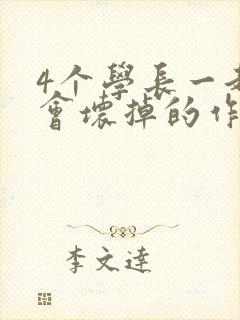 4个學長一
會壞掉的作
李文達